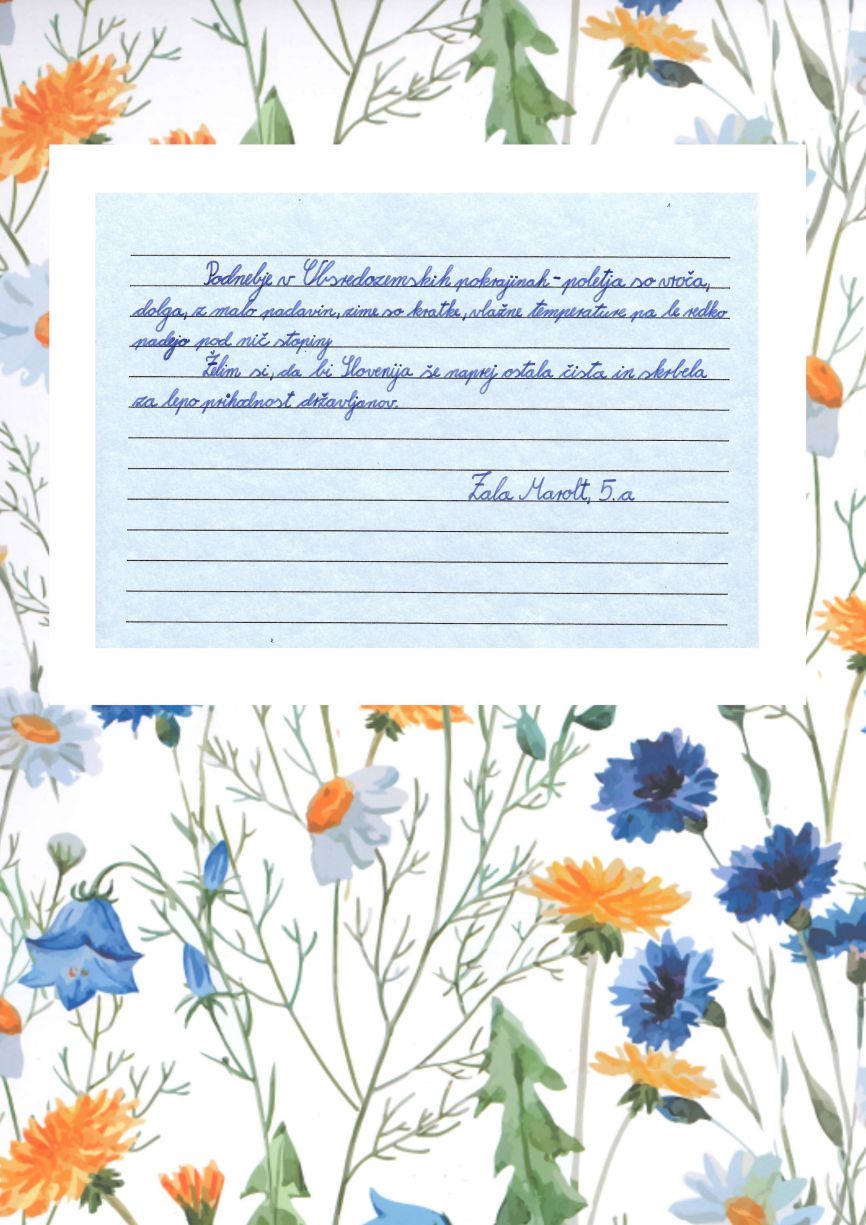 Podnebje v Obsredozemskih pokrajinah - poletja so vroča,
dolga, z malo padavin, zime so kratke, vlažne temperature pa le redko
padejo pod nič stopinj
Želim si, da bi Slovenija še naprej ostala čista in skrbela
za lepo prihodnost državljanov.
Zala Marolt, 5. a